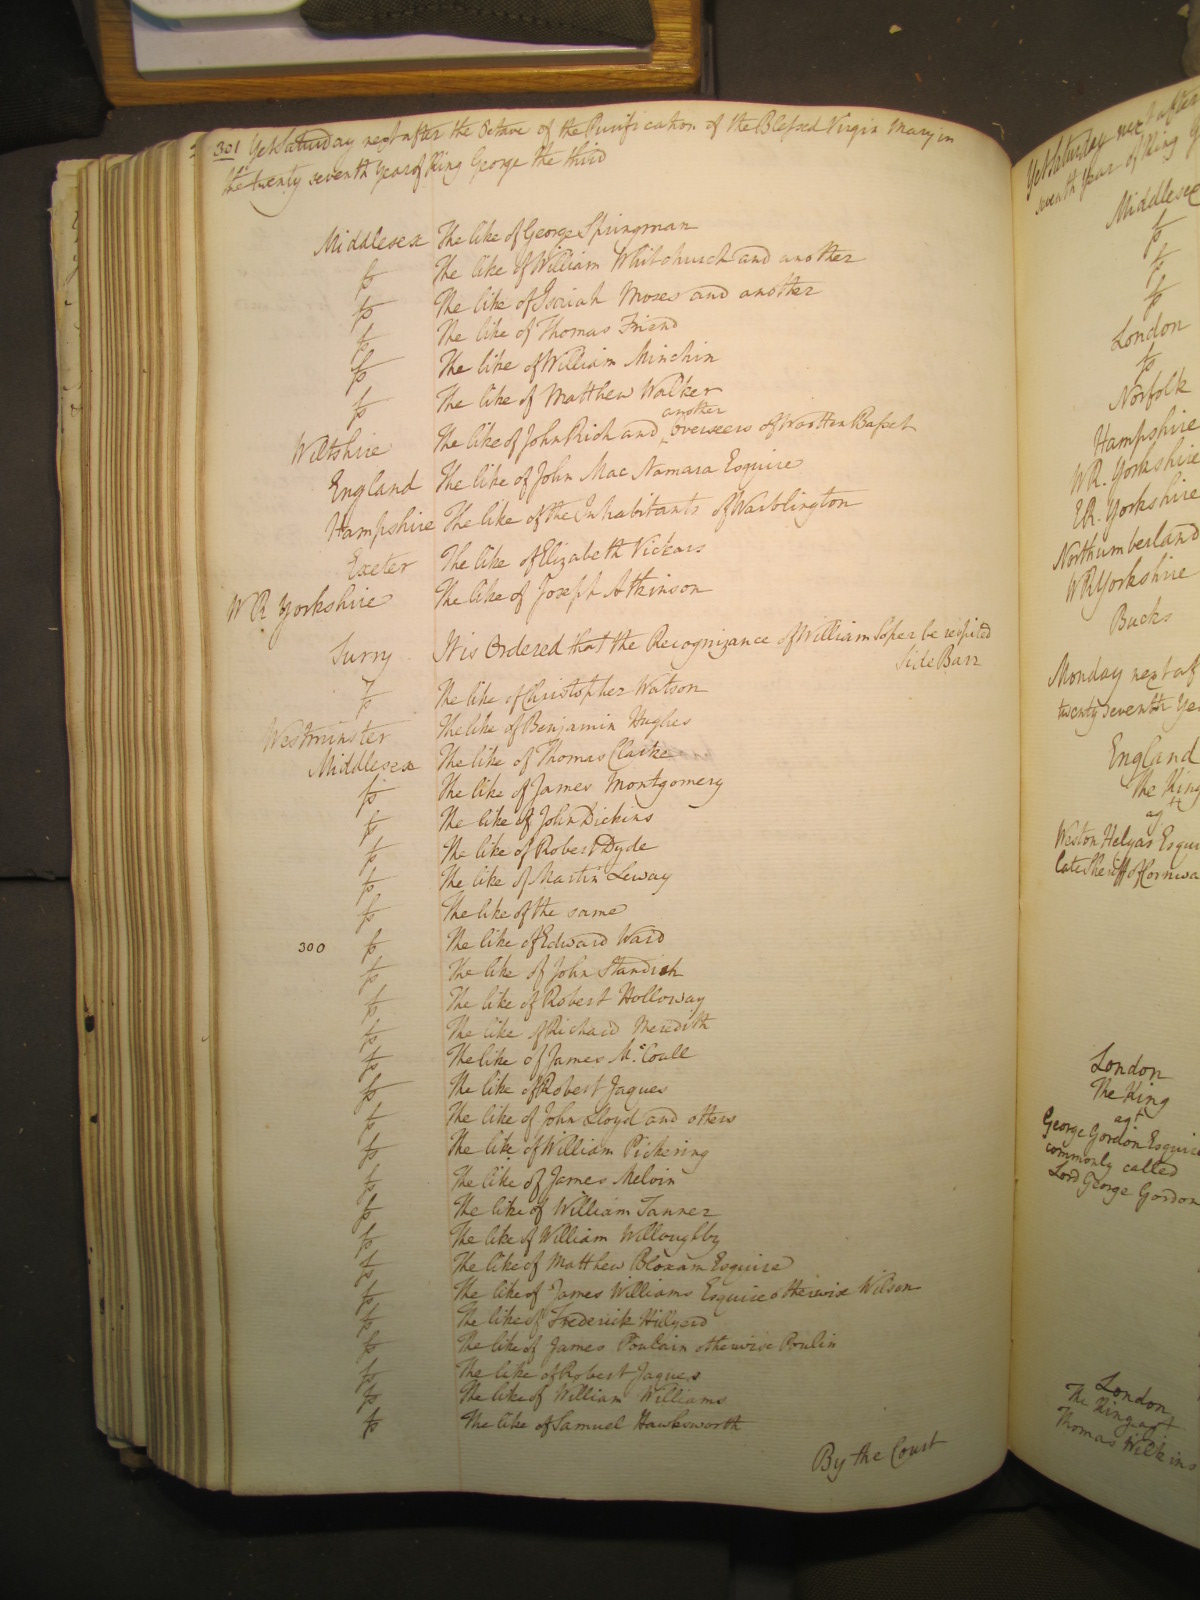 301 Yet Saturday next after the Octave of the Purification of the Blessed Virgin Mary in
the twenty seventh Year of King George the third
Middlesex The like of George Springman
fs The like of William Whitchurch and another
fs The like of Isaiah Moses and another
fs The like of Thomas Friend
fs The like of William Minchin
fs The like of Matthew Walker
another
Wiltshire The like of John Rich and overseers of Wootten Basset
England The like of John Mac Namara Esquire
Hampshire The like of the Inhabitants of Warblington
Exeter The like of Elizabeth Vickars
WR Yorkshire The like of Joseph Atkinson
Surry It is Ordered that the Recognizance of William Soper be respited
Side Barr
fs The like of Christopher Watson
Westminster The like of Benjamin Hughes
Middlesex The like of Thomas Clarke
fs The like of James Montgomery
fs The like of John Dickins
fs The like of Robert Dyde
fs The like of Martin Leway
fs The like of the same
300 fs The like of Edward Ward
fs The like of John Standish
fs The like of Robert Holloway
fs The like of Richard Meredith
fs The like of James McCoull
fs The like of Robert Jaques
fs The like of John Lloyd and others
fs The like of William Pickering
fs The like of James Melvin
fs The like of William Tanner
fs The like of William Willoughby
fs The like of Matthew Bloxam Esquire
fs The like of James Williams Esquire otherwise Wilson
fs The like of Frederick Hilyard
fs The like of James Poulain otherwise Poulin
fs The like of Robert Jaques
fs The like of William Williams
fs The like of Samuel Hawksworth
By the Court
Yet Saturday next after
seventh Year of King
Middlesex
fs
fs
fs
London
fs
Norfolk
Hampshire
WR. Yorkshire
ER. Yorkshire
Northumberland
WR Yorkshire
Bucks
Monday next af
twenty seventh Ye
England
The King
agt
Weston Helyar Esqui
late Sheriff of Cornwa
London
The King
agt
George Gordon Esquire
commonly called
Lord George Gordon
London
The King agt
Thomas Wilkins